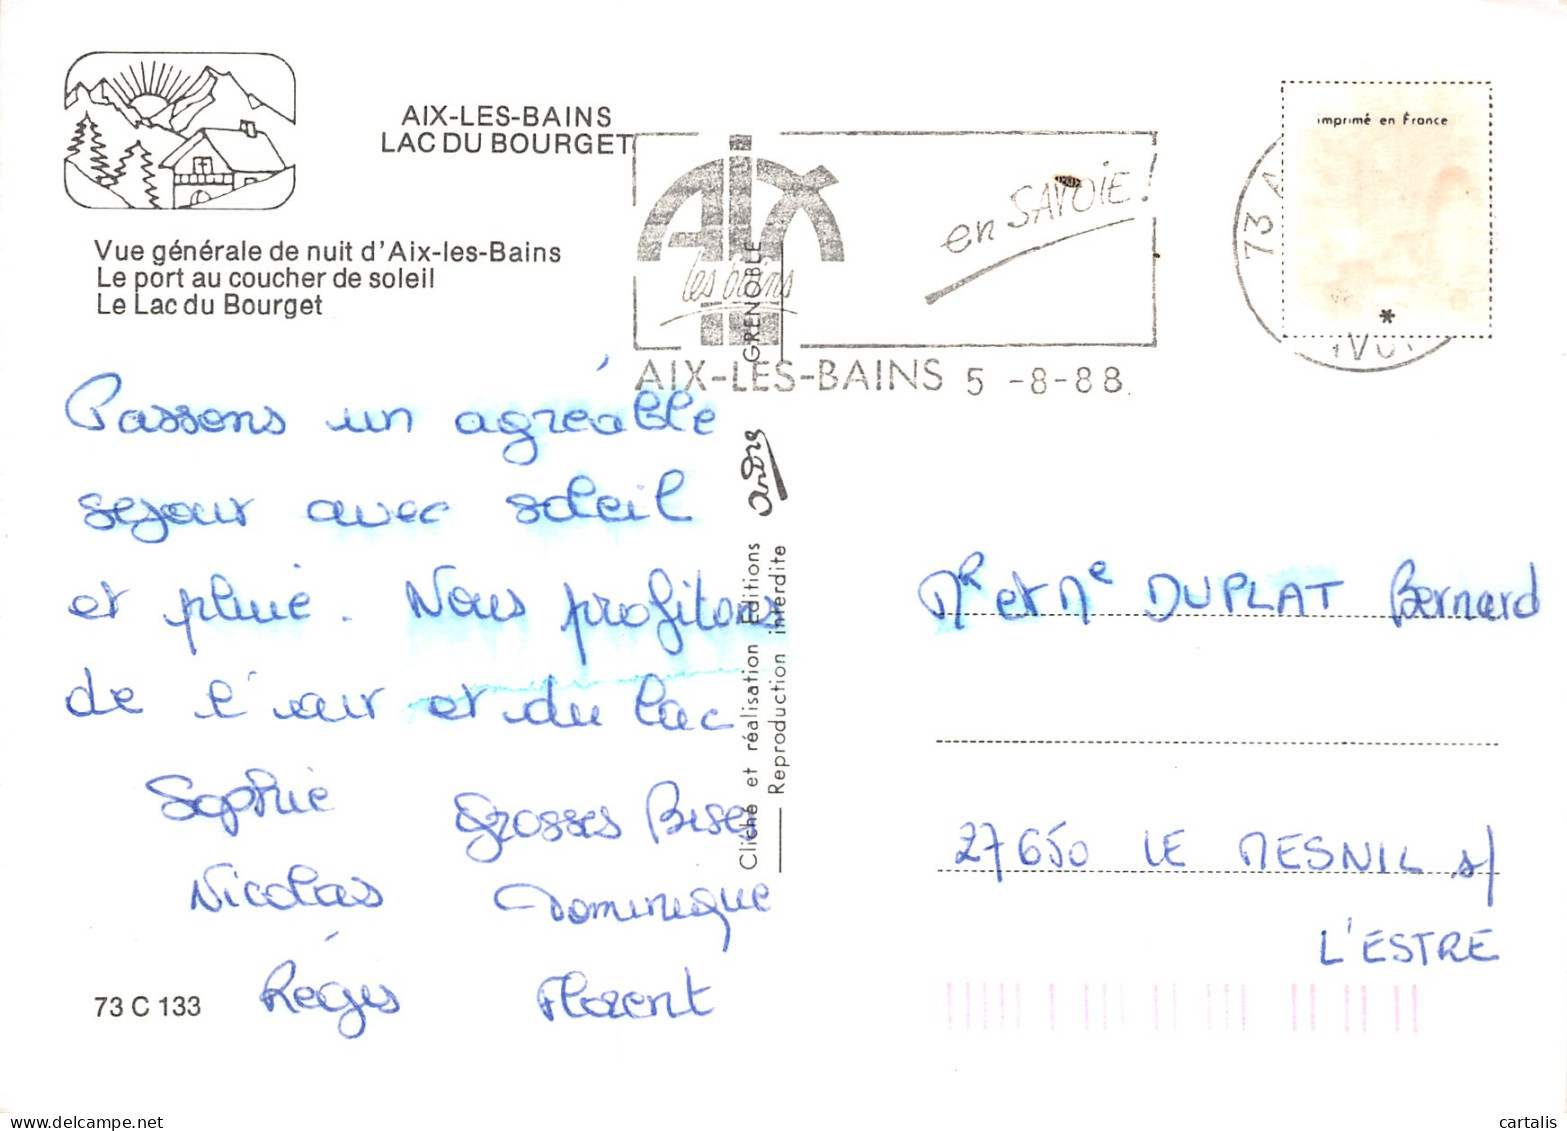 AIX-LES-BAINS
LAC DU BOURGET
Vue générale de nuit d'Aix-les-Bains
Le port au coucher de soleil
Le Lac du Bourget
AIX
les bains
en SAVOIE!
AIX-LES-BAINS 5 -8-88
73 A
imprimé en France
*
Passons un agréable
sejour avec soleil
et pluie. Nous profitons
de l'air et du lac
Sophie Grosses Bises
Nicolas Dominique
Régis Florent
73 C 133
GRENOBLE
André
Cliché et réalisation Editions
Reproduction interdite
Mr et Me DUPLAT Bernard
27650 LE MESNIL s/
L'ESTRE
cartalis